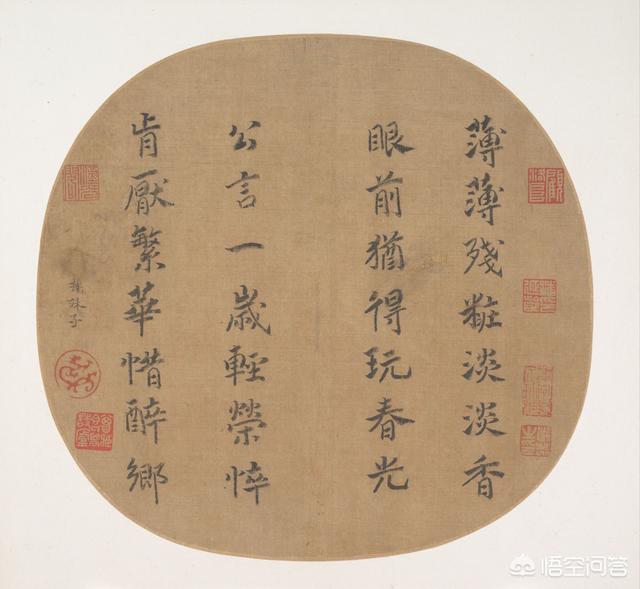 薄薄殘粧淡淡香
眼前猶得玩春光
公言一歲輕榮悴
肯厭繁華惜醉鄉
楊妹子
悟空问答